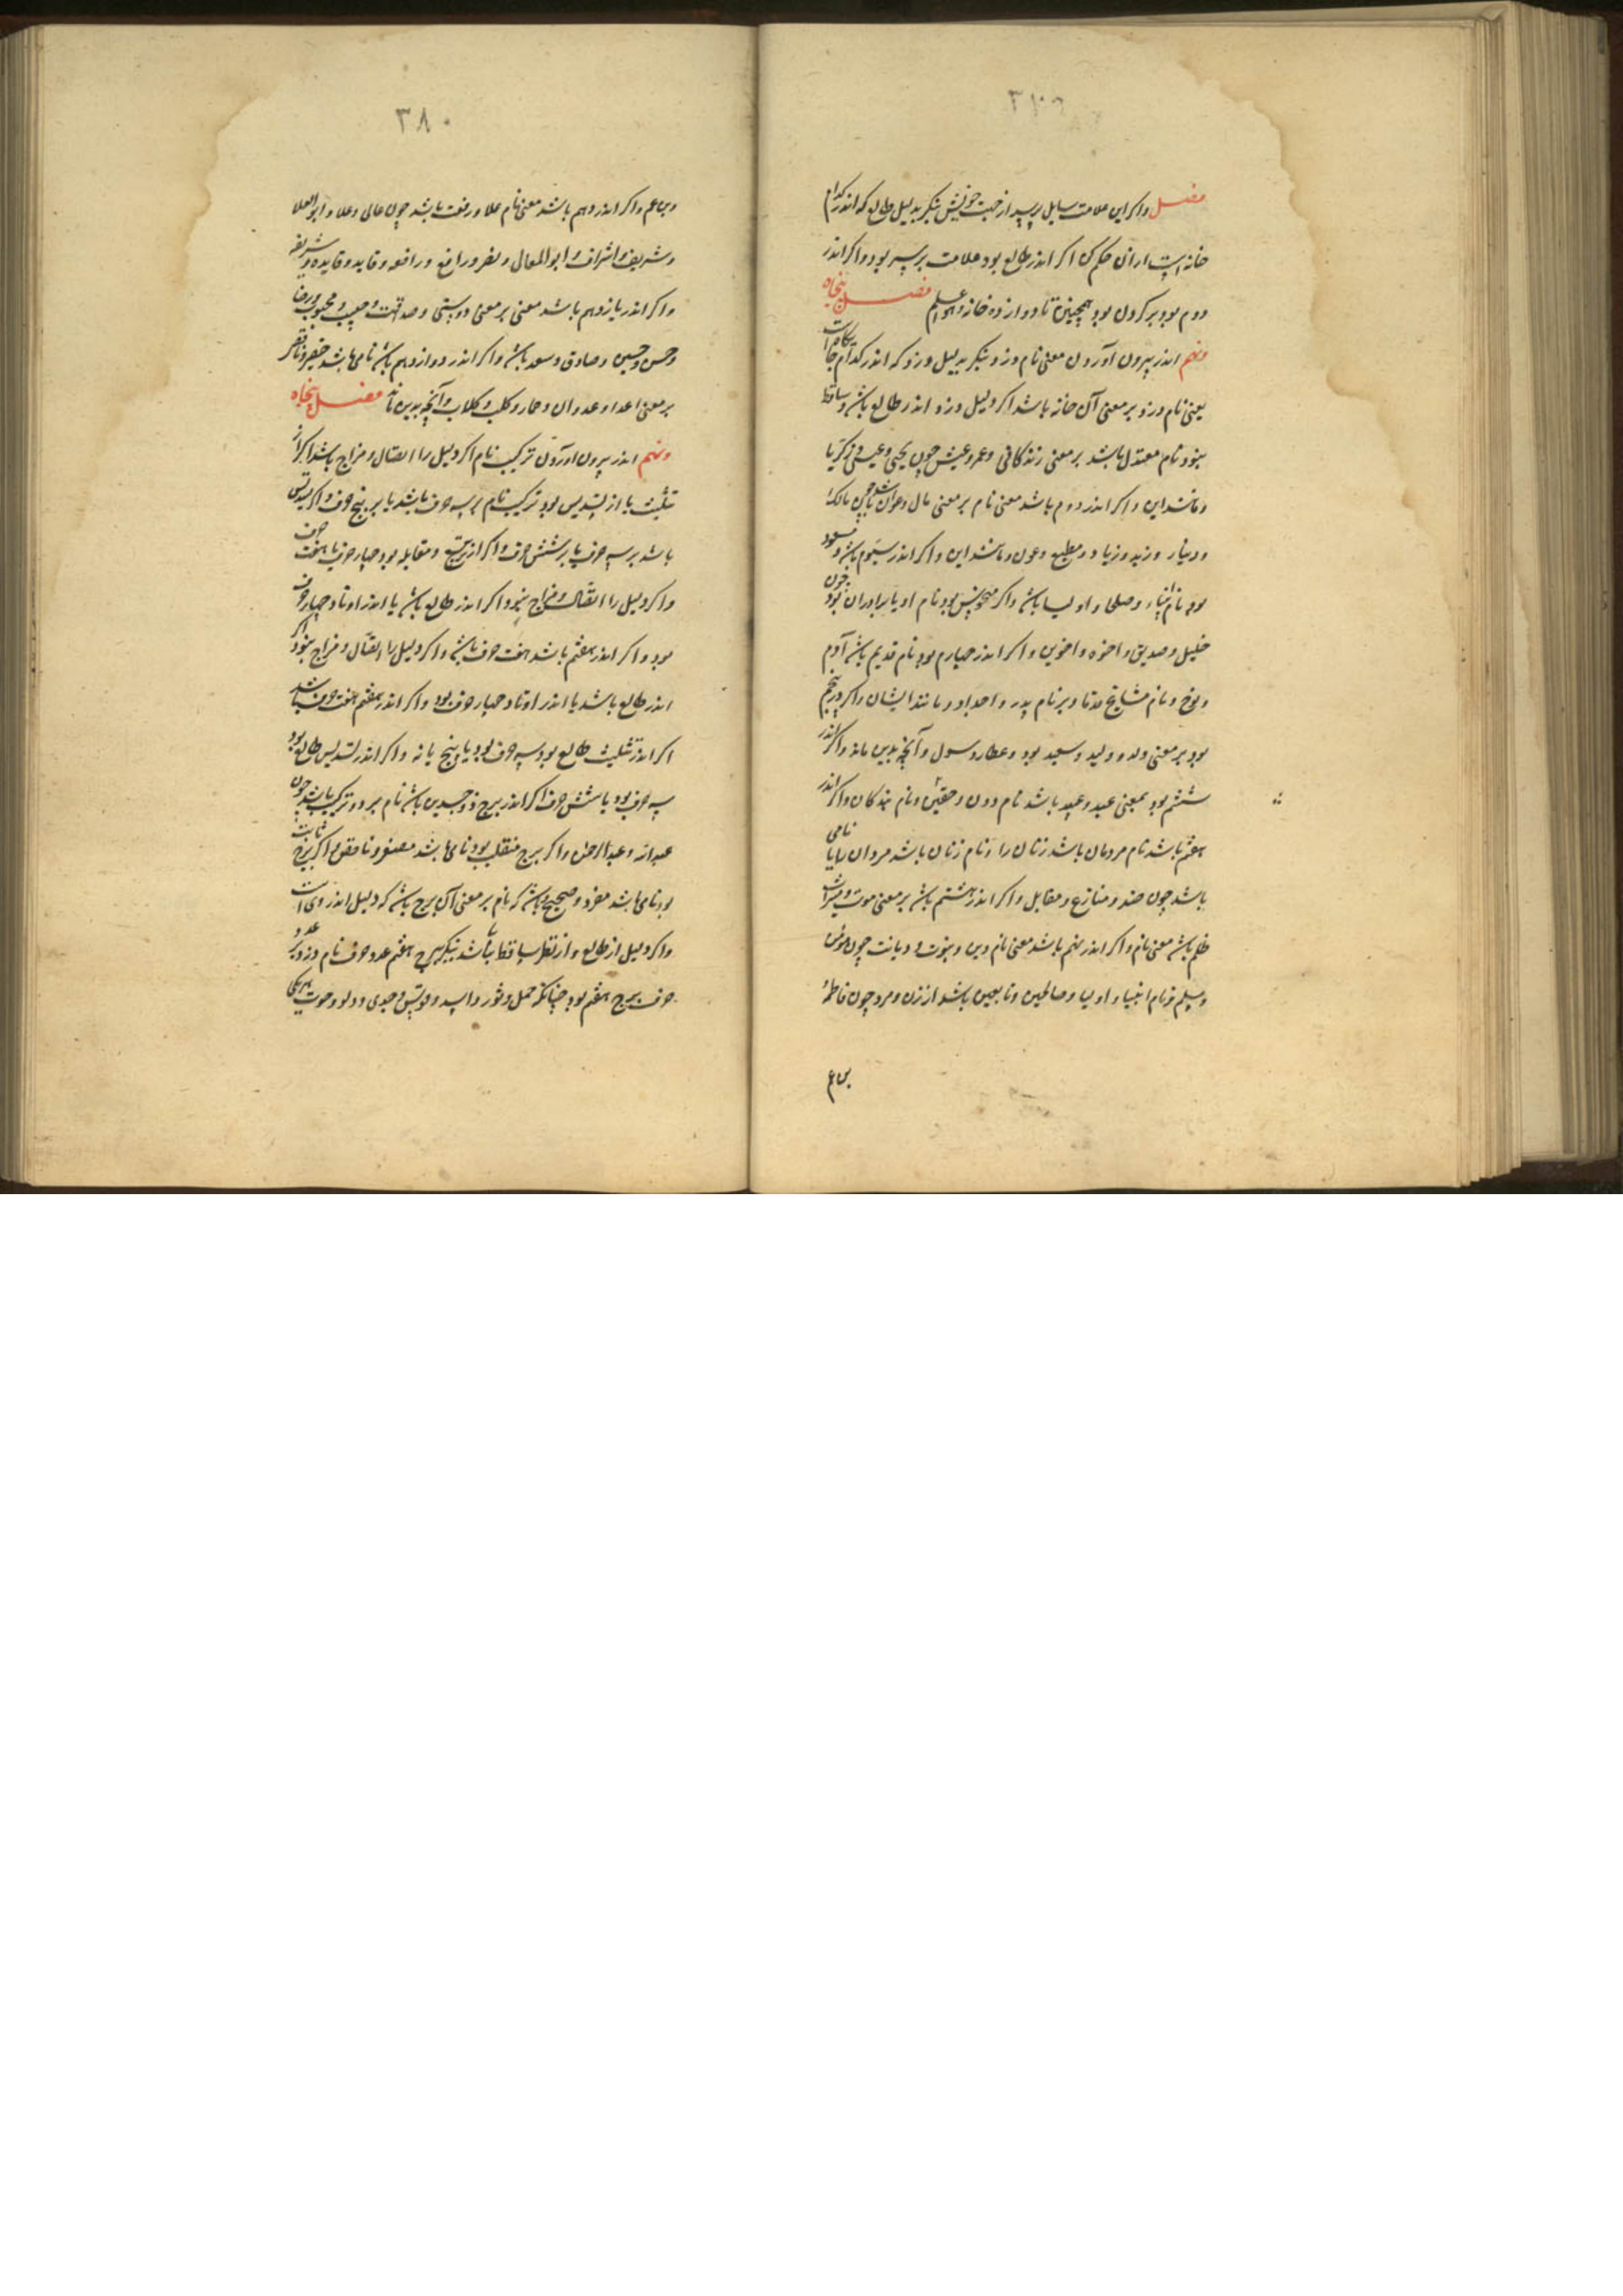 فصل واکر این علامت سایل پرسید از جهت خویش بنکر بدلیل طالع که اندر کدام
خانه است ازان حکم کن اکر اندر طالع بود علامت بر سر بود و اکر اندر
دوم بود بر کردن بود همچنین تا دوازده خانه فصل پنجاه
ونهم اندر بیرون آوردن معنی نام دزد بنکر بدلیل دزد که اندر کدام
یعنی نام دزد بر معنی آن خانه باشد اکر دلیل دزد اندر طالع باشد و ساقط
نبود نام معتدل باشد بر معنی زندکانی و عمر و عیش چون یحیی و عیسی و زکریا
و مانند این و اکر اندر دوم باشد معنی نام بر معنی مال باشد چون مالک
و دینار و زید و زیاد و مطیع و عون و مانند این و اکر اندر سیوم باشد و مسعود
بود نام انبیاء و صلحا و اولیا باشد و اکر منحوس بود نام او یا برادران بود چون
خلیل و صدیق و اخوه و اخوین و اکر اندر چهارم بود نام قدیم باشد آدم
و نوح و نام مشایخ و بر نام پدر و اجداد و مانند ایشان و اکر در پنجم
بود بر معنی ولد و ولید و سعید بود و عطا و رسول و آنچه بدین ماند و اکر اندر
ششم بود بمعنی عبید و عبید باشد نام دون و حقیر و نام بندکان و اکر اندر
هفتم باشد نام مردمان باشد زنان را و نام زنان باشد مردان را یا نامی
باشد چون ضد و منازع و مقابل و اکر اندر هشتم باشد بر معنی موت و میراث
ظلم باشد معنی نام و اکر اندر نهم باشد معنی نام دین و نبوت و دیانت چون مونس
و مسلم و نام انبیاء و اولیا و صالحین و تابعین باشد از زن و مرد چون فاطمه
۳۸۰
و اکر اندر دهم باشد معنی نام علا و رفعت باشد چون عالی و علا و ابوالعلا
و شریف و اشراف و ابوالمعالی و نصر و رافع و رافعه و قاید و قایده و شریفه
و اکر اندر یازدهم باشد معنی بر معنی دوستی و صداقت و حبیب و محبوب و رضا
و حسن و حسین و صادق و سعد باشد و اکر اندر دوازدهم باشد نامی باشد
بر معنی اعدا و عدوان و حمار و کلب و کلاب و آنچه بدین ماند فصل پنجاه
ونهم اندر بیرون اوردن ترکیب نام اکر دلیل را اتصال و مزاج باشد اکر از
تثلیث یا از تسدیس بود ترکیب نام بر سه حرف باشد یا بر پنج حرف و اکر تسدیس
باشد بر سه حرف یا بر شش حرف و اکر از تربیع و مقابله بود چهار حرف یا هفت حرف
و اکر دلیل را اتصال و مزاج نبود و اکر اندر طالع باشد یا اندر اوتاد چهار حرف
بود و اکر اندر هفتم باشد هفت حرف باشد و اکر دلیل را اتصال و مزاج نبود اکر
اندر طالع باشد یا اندر اوتاد چهار حرف بود و اکر اندر هفتم هفت حرف باشد
اکر اندر تثلیث طالع بود سه حرف بود یا پنج یا نه و اکر اندر تسدیس طالع بود
سه حرف بود یا شش حرف اکر اندر برج ذوجسدین باشد نام بر دو ترکیب باشد چون
عبدالله و عبدالرحمن و اکر برج منقلب بود نامی باشد مصغر و ناقص و اکر برج ثابت
بود نامی باشد مفرد و صحیح و باشد که نام بر معنی آن برج باشد که دلیل اندر وی است
و اکر دلیل از طالع و از نظر ساقط باشد بنکر ببرج هفتم عدد حرف نام دزد بر عدد
حرف برج هفتم بود چنانکه حمل و ثور و اسد و قوس و جدی و دلو و حوت